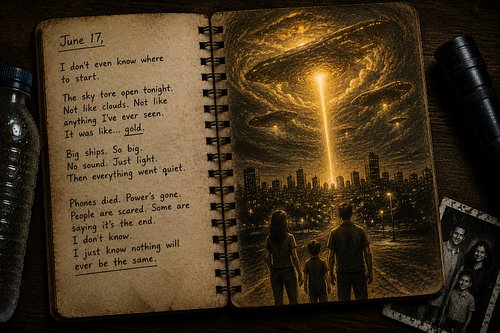 June 17,
I don't even know where
to start.
The sky tore open tonight.
Not like clouds. Not like
anything I've ever seen.
It was like... gold.
Big ships. So big.
No sound. Just light.
Then everything went quiet.
Phones died. Power's gone.
People are scared. Some are
saying it's the end.
I don't know.
I just know nothing will
ever be the same.